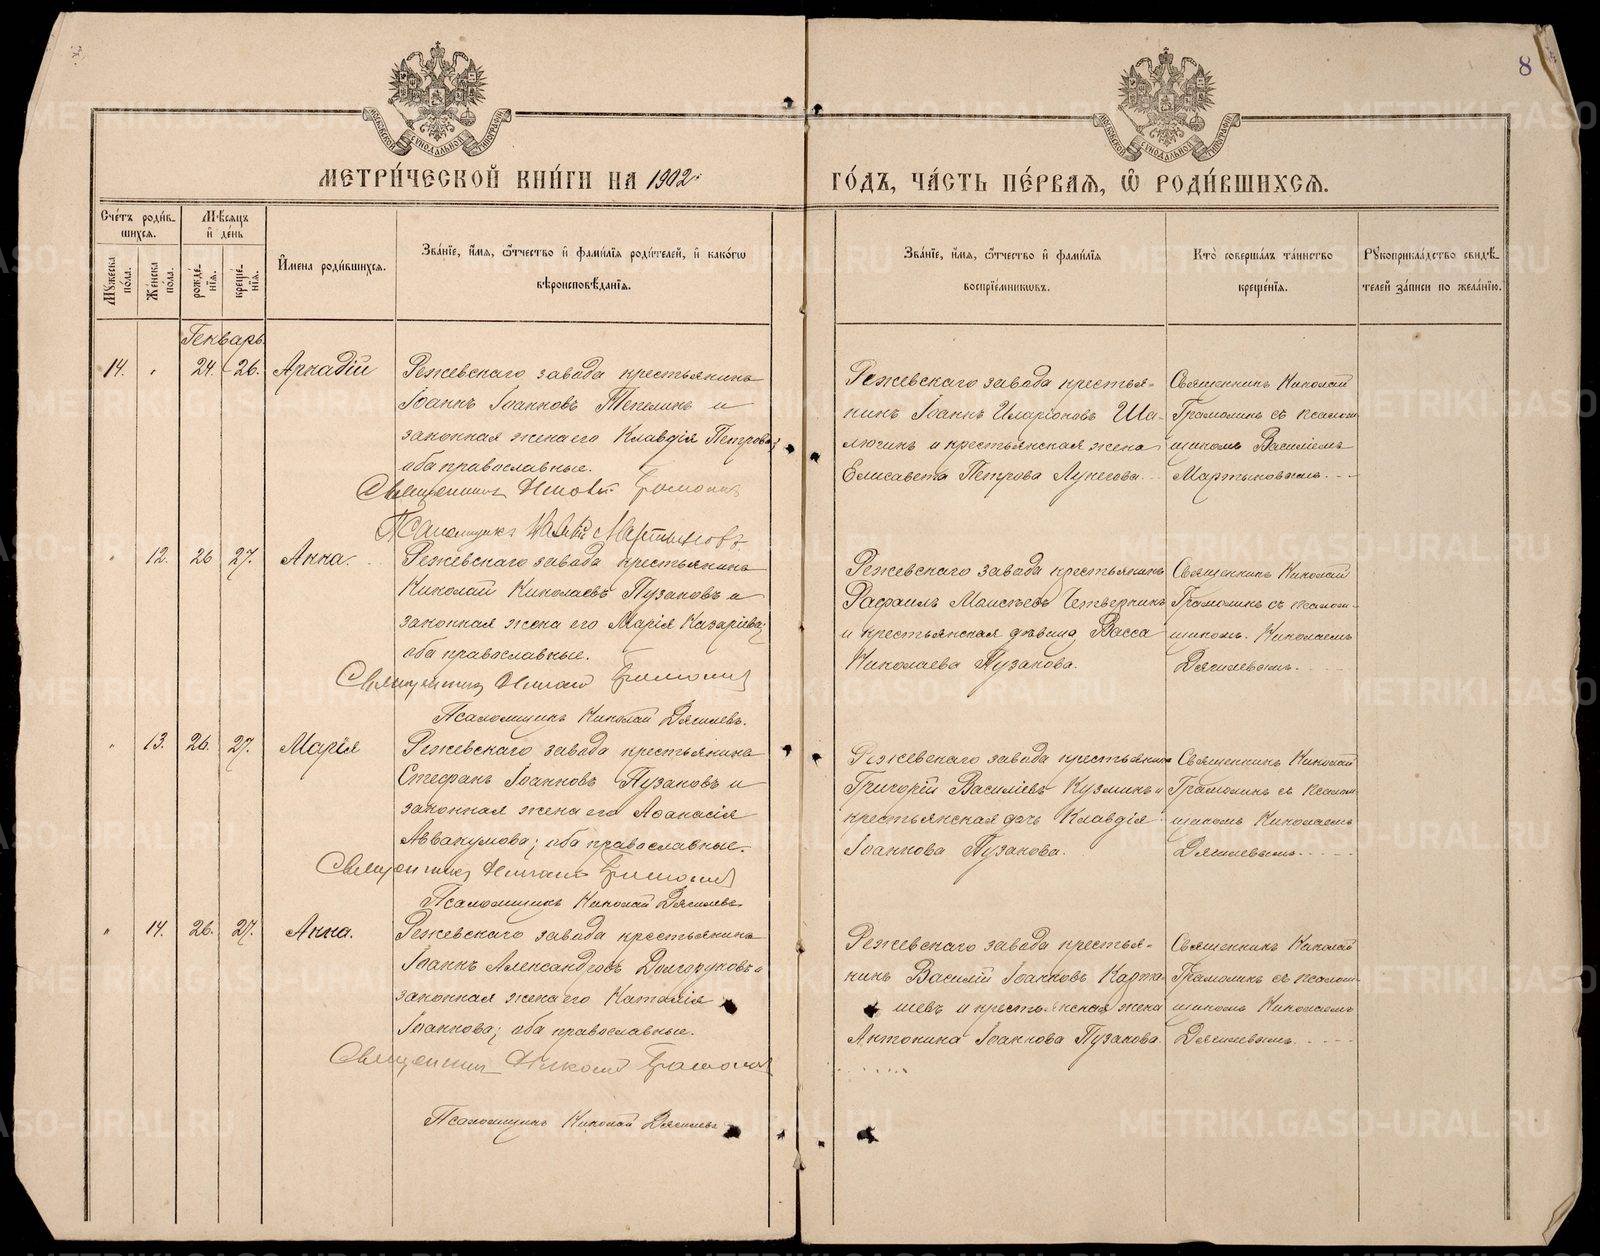 8
МЕТРИ́ЧЕСКОЙ КНИ́ГИ НА 1902
ГО́ДЪ, ЧА́СТЬ ПЕ́РВАЯ, Ѽ РОДИ́ВШИХСЯ.
Сче́тъ роди́в-
шихся.
Му́жеска по́ла.
Же́нска по́ла.
Мѣ́сяцъ и҆ де́нь
рожде́-
нїя.
креще́-
нїя.
И҆мена̀ роди́вшихся.
Зва́нїе, и҆́мя, ѻ҆́тчество и҆ фами́лїя роди́телей, и҆ како́гѡ
вѣроисповѣ́данїя.
Зва́нїе, и҆́мя, ѻ҆́тчество и҆ фами́лїя
воспрїе́мникѡвъ.
Кто̀ соверша́лъ та́инство
креще́нїя.
Рꙋкоприкла́дство свидѣ́-
телей за́писи по жела́нїю.
Генварь
14. 24. 26. Аркадій
Режевскаго завода крестьянинъ
Іоаннъ Іоанновъ и
законная жена его Клавдія Петрова;
оба православные.
Священник Николай Грамолин
Псаломщикъ Василій Мартыновъ
Режевскаго завода крестья-
нинъ Іоаннъ Иларіоновъ Ша-
люгинъ и крестьянская жена
Елисавета Петрова
Священникъ Николай
Грамолинъ съ псалом-
щикомъ Василіемъ
Мартыновымъ.
12. 26 27. Анна.
Режевскаго завода крестьянинъ
Николай Николаевъ Пузановъ и
законная жена его Марія Назаріева;
оба православные.
Священник Николай Грамолин
Псаломщикъ Николай Дягилевъ.
Режевскаго завода крестьянинъ
Рафаилъ Моисеевъ Четверкинъ
и крестьянская дѣвица Васса
Николаева Пузанова.
Священникъ Николай
Грамолинъ съ псалом-
щикомъ Николаемъ
Дягилевымъ.
13. 26. 27. Марія
Режевскаго завода крестьянинъ
Стефанъ Іоанновъ Пузановъ и
законная жена его Аѳанасія
Аввакумова; оба православные.
Священник Николай Грамолин
Псаломщикъ Николай Дягилевъ
Режевскаго завода крестьянинъ
Григорій Василіевъ Кузминъ и
крестьянская дочь Клавдія
Іоаннова Пузанова.
Священникъ Николай
Грамолинъ съ псалом-
щикомъ Николаемъ
Дягилевымъ.
14. 26. 27. Анна.
Режевскаго завода крестьянинъ
Іоаннъ Александровъ Долгоруковъ и
законная жена его Наталія
Іоаннова; оба православные.
Священник Николай Грамолин
Псаломщикъ Николай Дягилевъ
Режевскаго завода крестья-
нинъ Василій Іоанновъ Карта-
шевъ и крестьянская жена
Антонина Іоаннова Пузанова
Священникъ Николай
Грамолинъ съ псалом-
щикомъ Николаемъ
Дягилевымъ.
METRIKI.GASO-URAL.RU